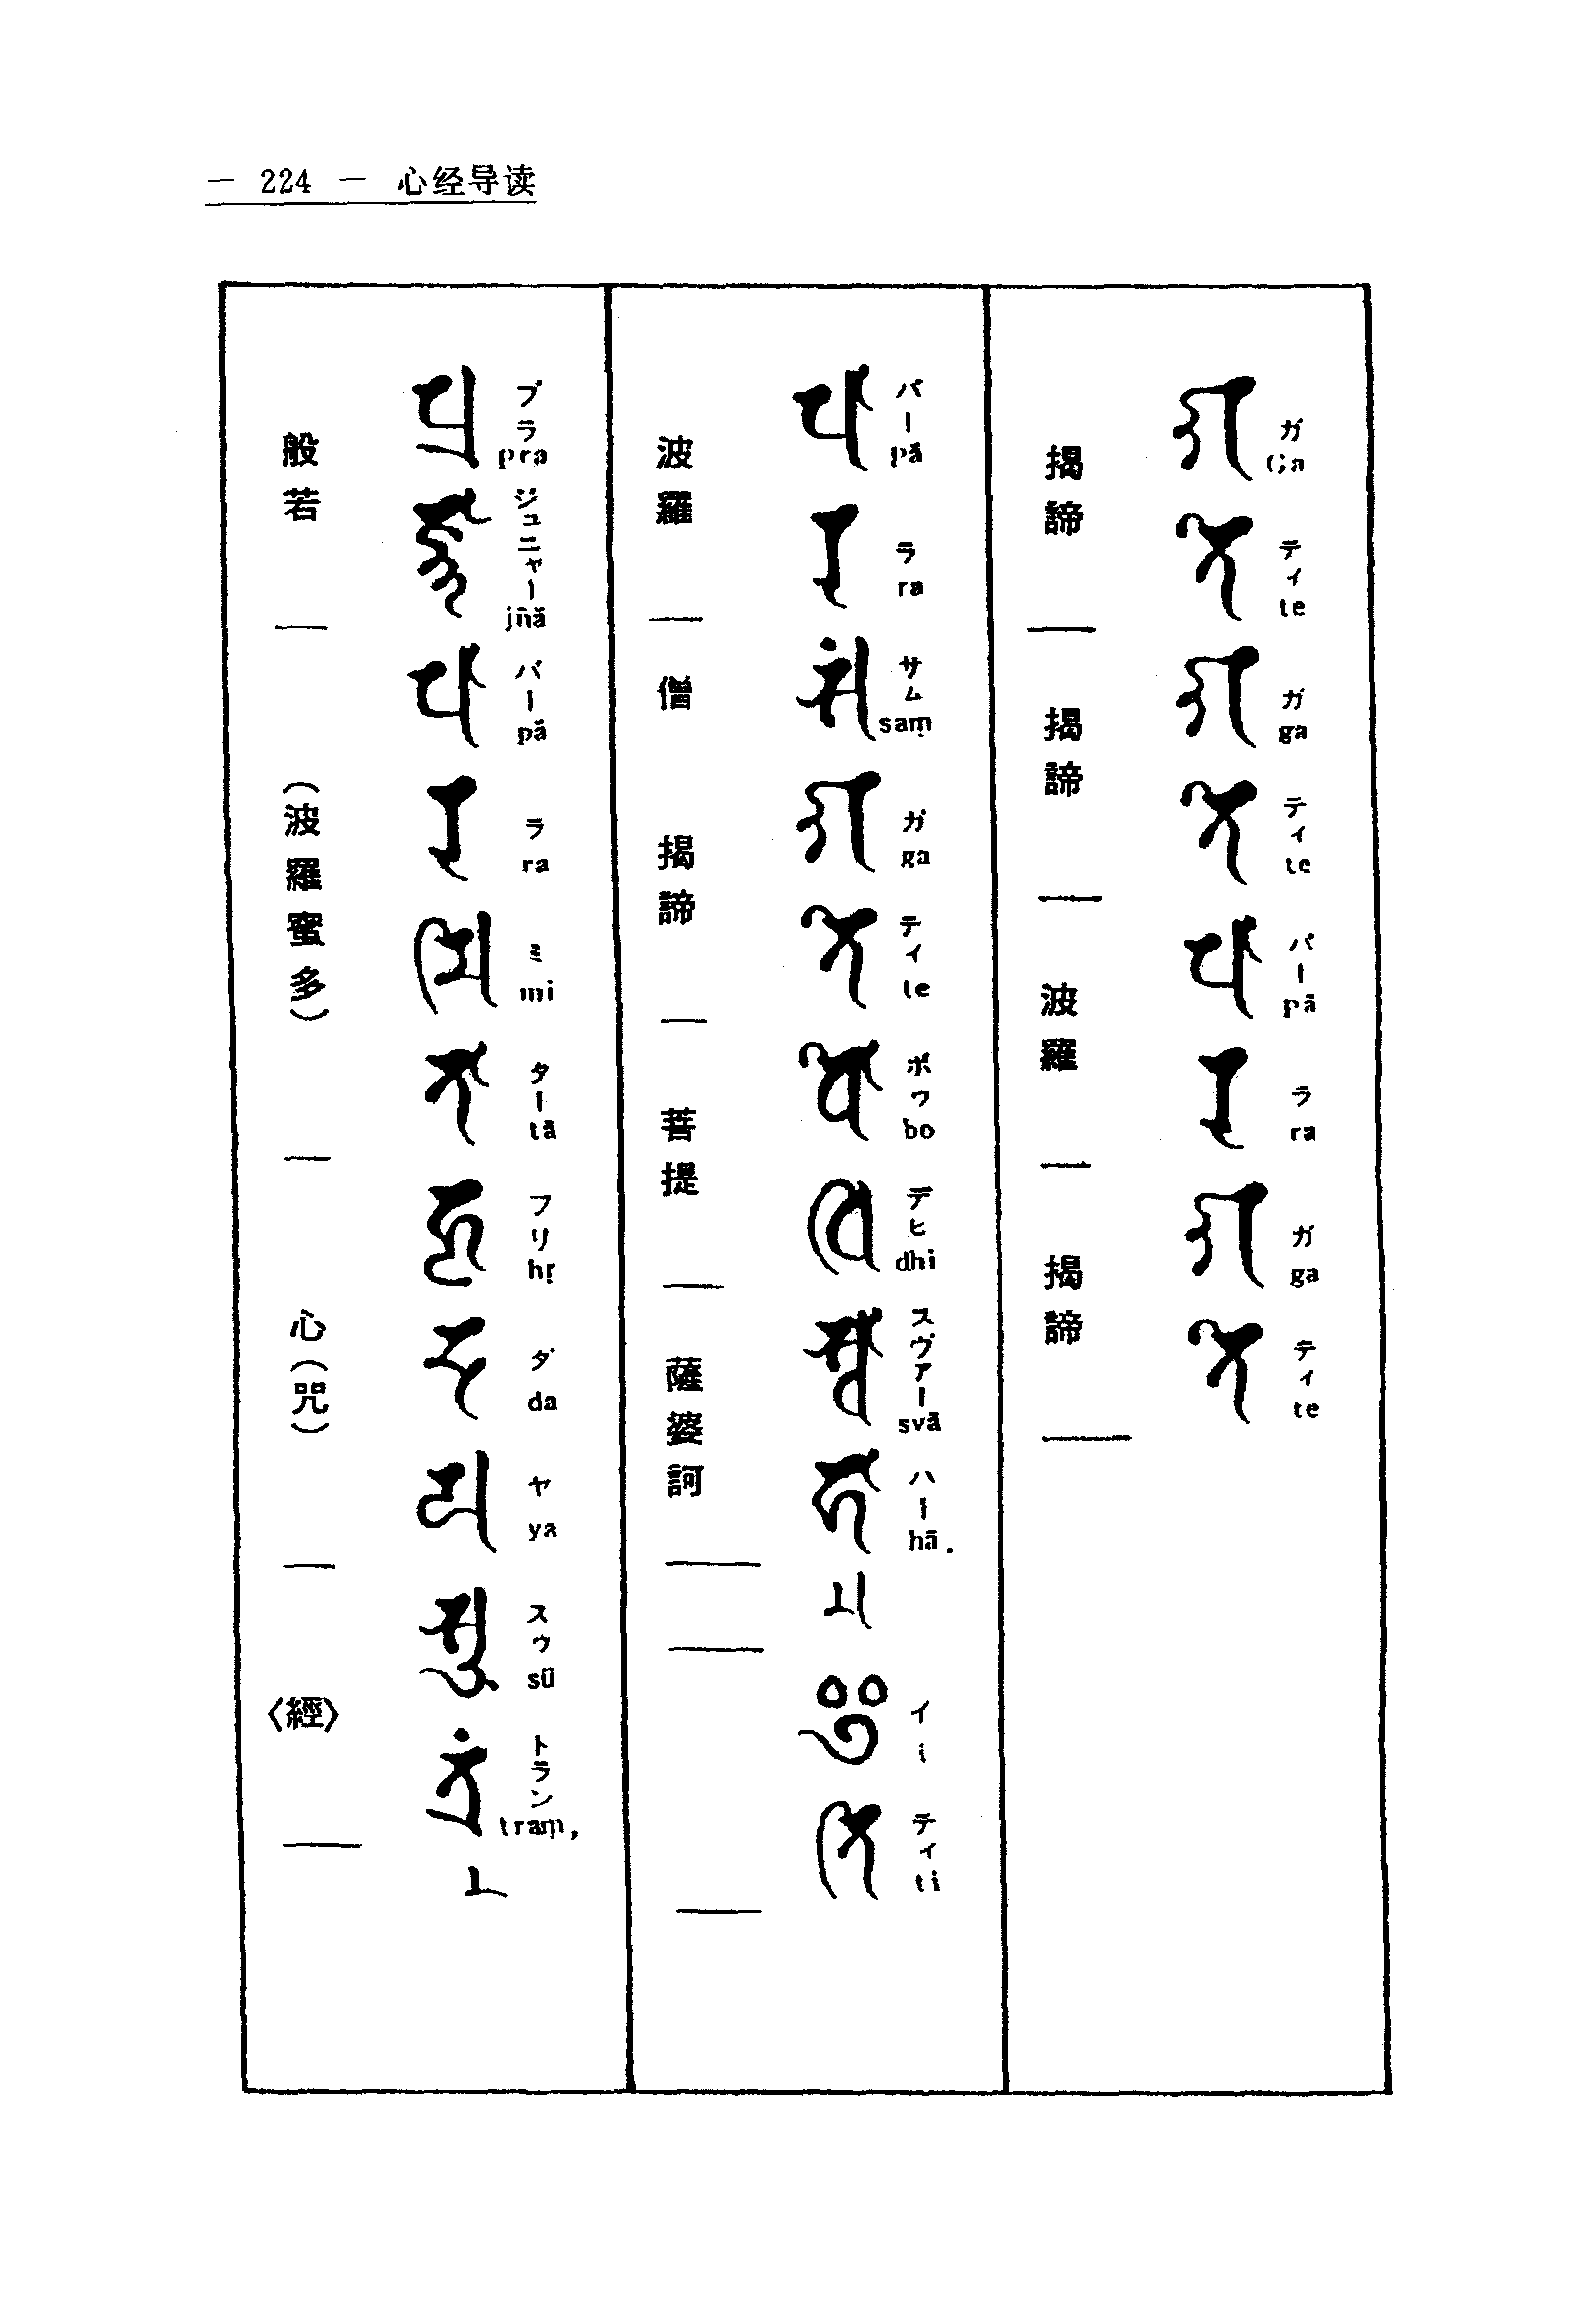 — 224 — 心经导读
ガ Ga ティ te ガ ga ティ te パー pā ラ ra ガ ga ティ te
𑖐𑖝𑖸𑖐𑖝𑖸𑖢𑖯𑖨𑖐𑖝𑖸
揭諦 揭諦 波羅 揭諦
パー pā ラ ra サム saṃ ガ ga ティ te ボゥ bo デヒ dhi スヴァー svā ハー hā. イ i ティ ti
𑖢𑖯𑖨𑖭𑖽𑖐𑖝𑖸𑖤𑖺𑖠𑖰𑖭𑖿𑖪𑖯𑖮𑖯 𑖂𑖝𑖰
波羅 僧 揭諦 菩提 薩婆訶
プラ pra ジュニャー jñā パー pā ラ ra ミ mi ター tā フリ hṛ ダ da ヤ ya スゥ sū トラン traṃ,
𑖢𑖿𑖨𑖕𑖿𑖗𑖯𑖢𑖯𑖨𑖦𑖰𑖝𑖯𑖮𑖴𑖟𑖧𑖭𑖳𑖝𑖿𑖨𑖽
般若 (波羅蜜多) 心(咒) 〈經〉